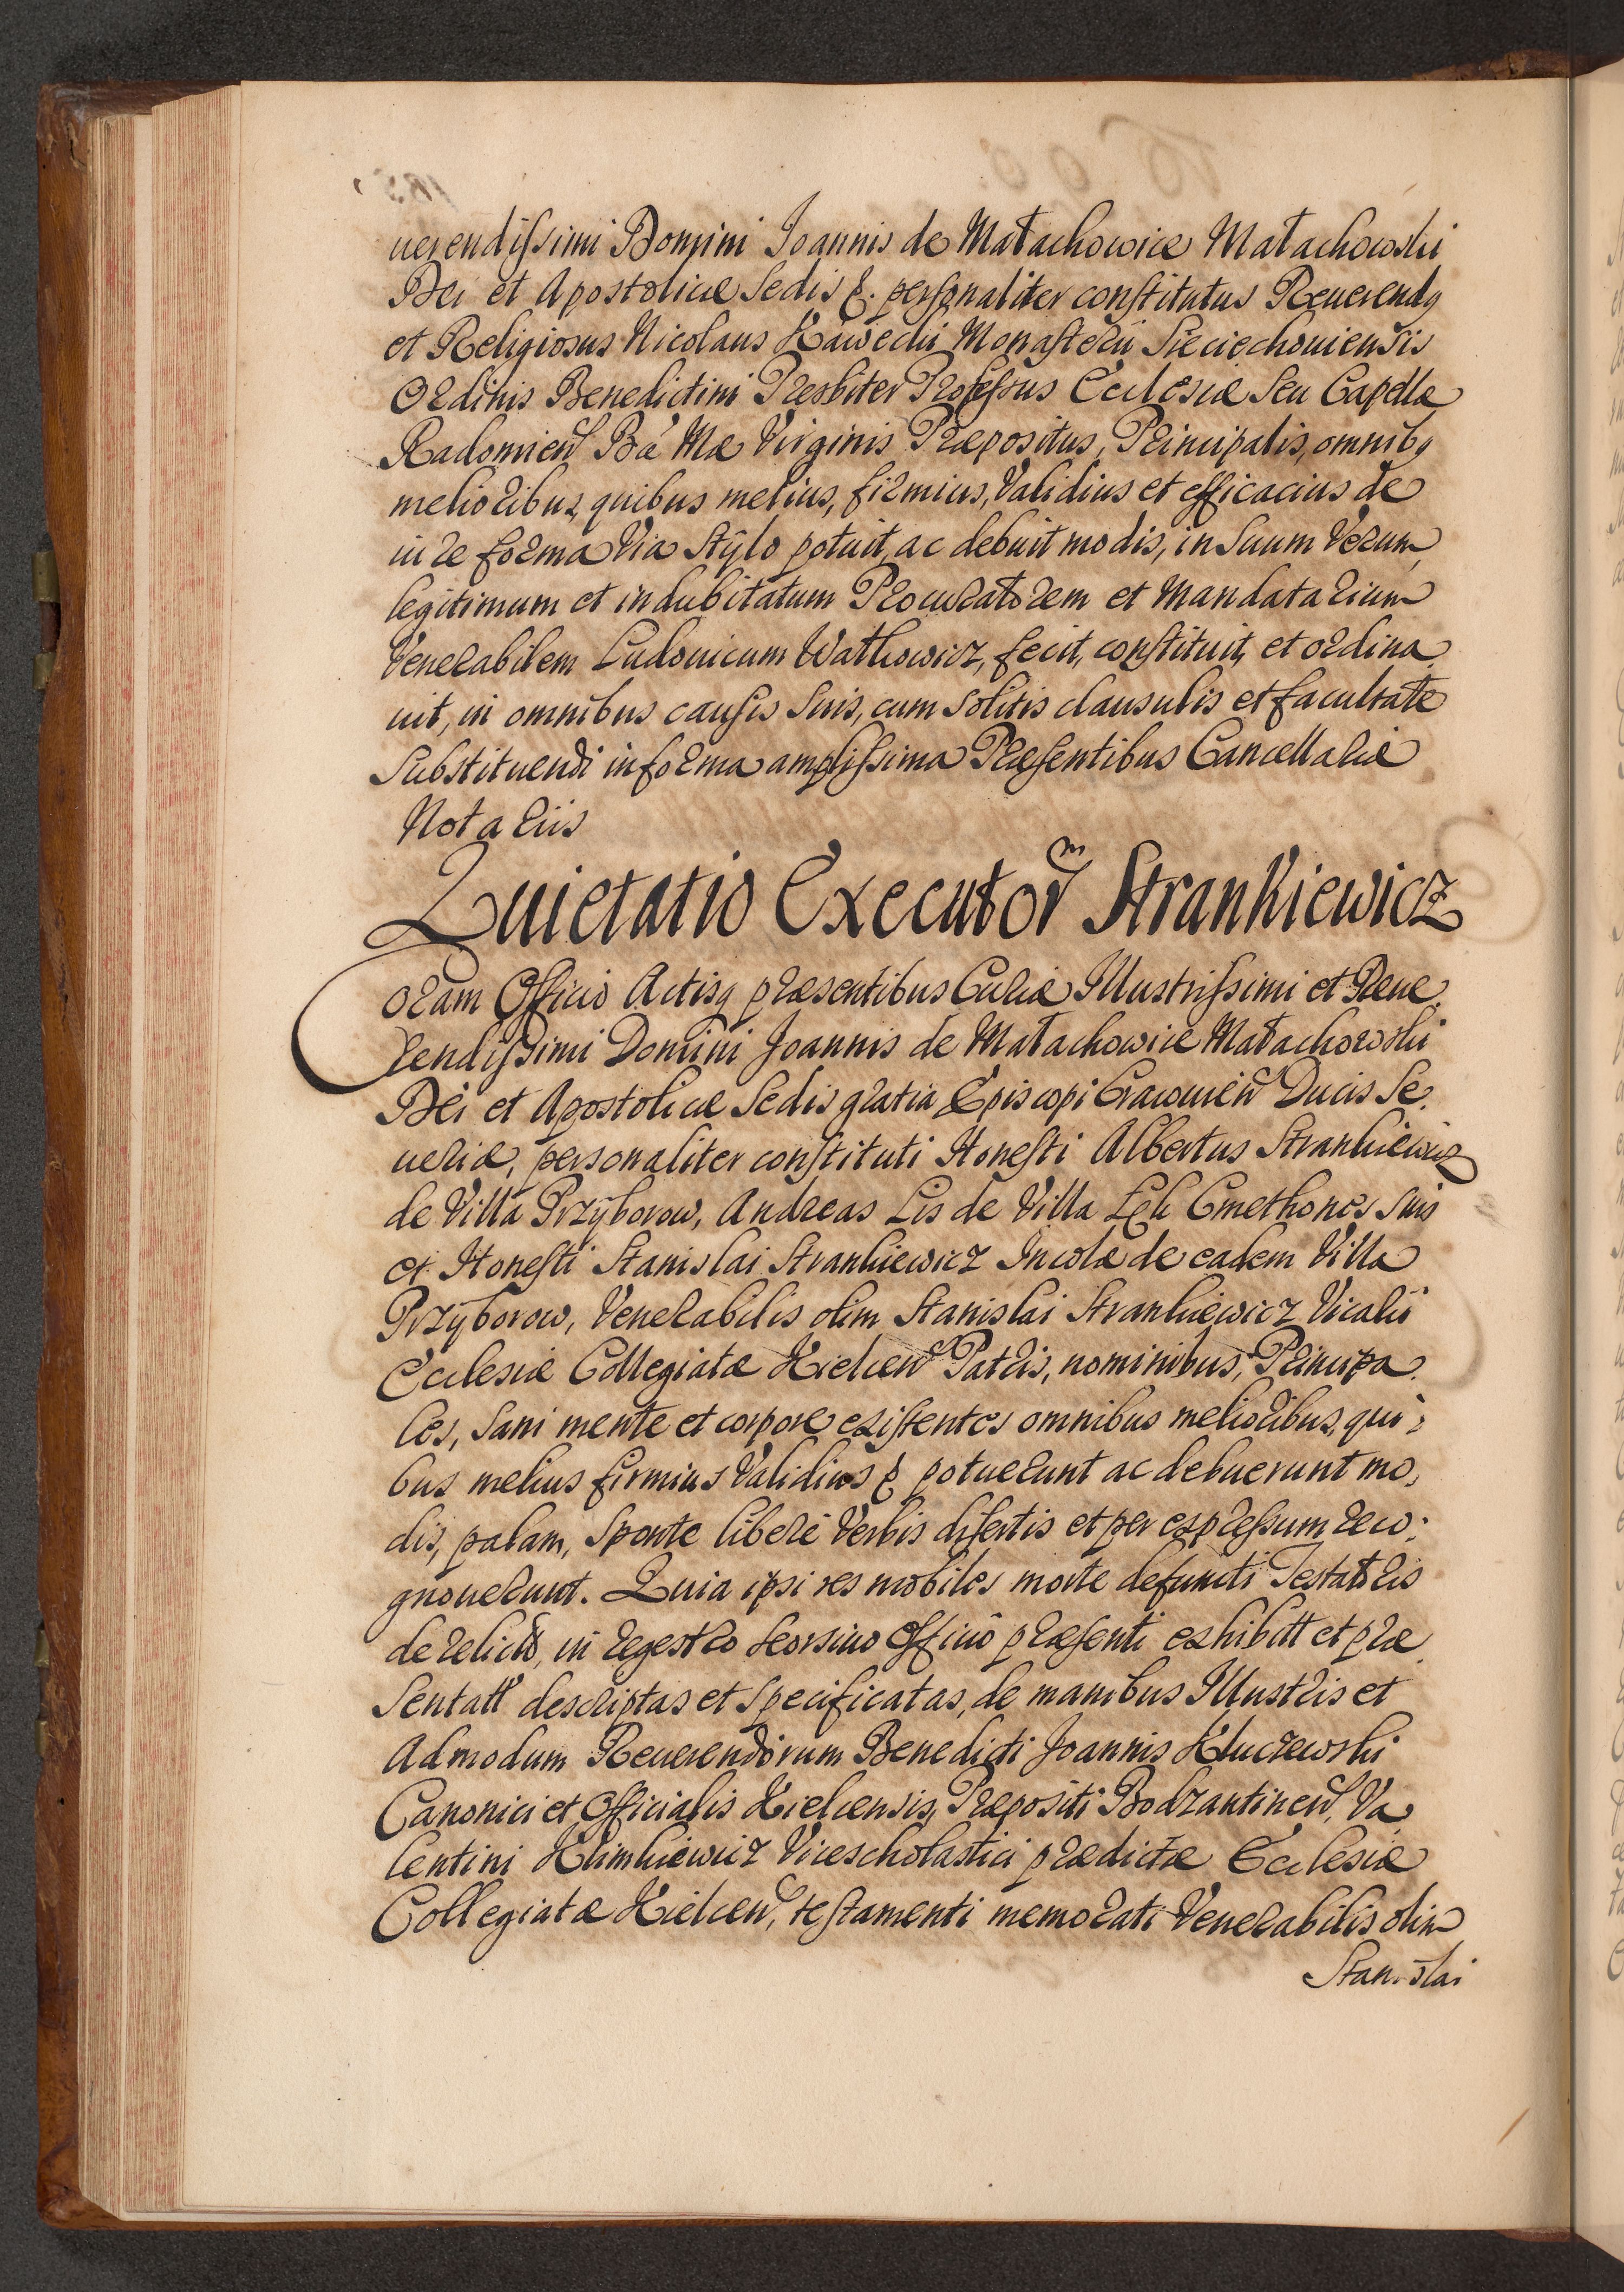 uerendissimi Domini Joannis de Małachowice Małachowski
Dei et Apostolicæ Sedis &. personaliter constitutus Reuerendq
et Religiosus Nicolaus Kawecki Monasterii Sieciechouiensis
Ordinis Benedictini Presbiter Professus Ecclesiæ Seu Capellæ
Radomien Bæ Mæ Virginis Præpositus, Principalis, omnibq
melioribus, quibus melius, firmius, Validius et efficacius de
iure forma Via Stylo potuit, ac debuit modis, in Suum Verum,
legitimum et indubitatum Procuratorem et Mandatarium
Venerabilem Ludouicum Watkowicz, fecit, constituit, et ordina
uit, in omnibus causis Suis, cum Solitis clausulis et facultate
Substituendi in forma amplissima Præsentibus Cancellariæ
Notariis
Quietatio Executorm Strankiewicz
Coram Officio Actisq præsentibus Curiæ Illustrissimi et Reue
rendissimi Domini Joannis de Małachowice Małachowski
Dei et Apostolicæ Sedis gratia Episcopi Cracouien Ducis Se
ueriæ, personaliter constituti Honesti Albertus Strankiewicz
de Villa Przyborow, Andreas Lis de Villa Łęk Cmethones suis
et Honesti Stanislai Strankiewicz Incolæ de eadem Villa
Przyborow, Venerabilis olim Stanislai Strankiewicz Vicarii
Ecclesiæ Collegiatæ Kielcen Patris, nominibus, Principa
les, Sani mente et corpore existentes omnibus melioribus, qui:
bus melius firmius Validius & potuerunt ac debuerunt mo,
dis, palam, Sponte liberè Verbis disertis et per expressum reco:
gnouerunt. Quia ipsi res mobiles morte defuncti Testatoris
derelictas, in regestro seorsiuo Officio præsenti exhibitt et præ
Sentatt descriptas et specificatas, de manibus Illustris et
Admodum Reuerendorum Benedicti Joannis Kluczewski
Canonici et Officialis Kielcensis, Præpositi Bodzantinen, Va
lentini Klimkiewicz Vicescholastici prædictæ Ecclesiæ
Collegiatæ Kielcen, testamenti memorati Venerabilis olim
Stanislai